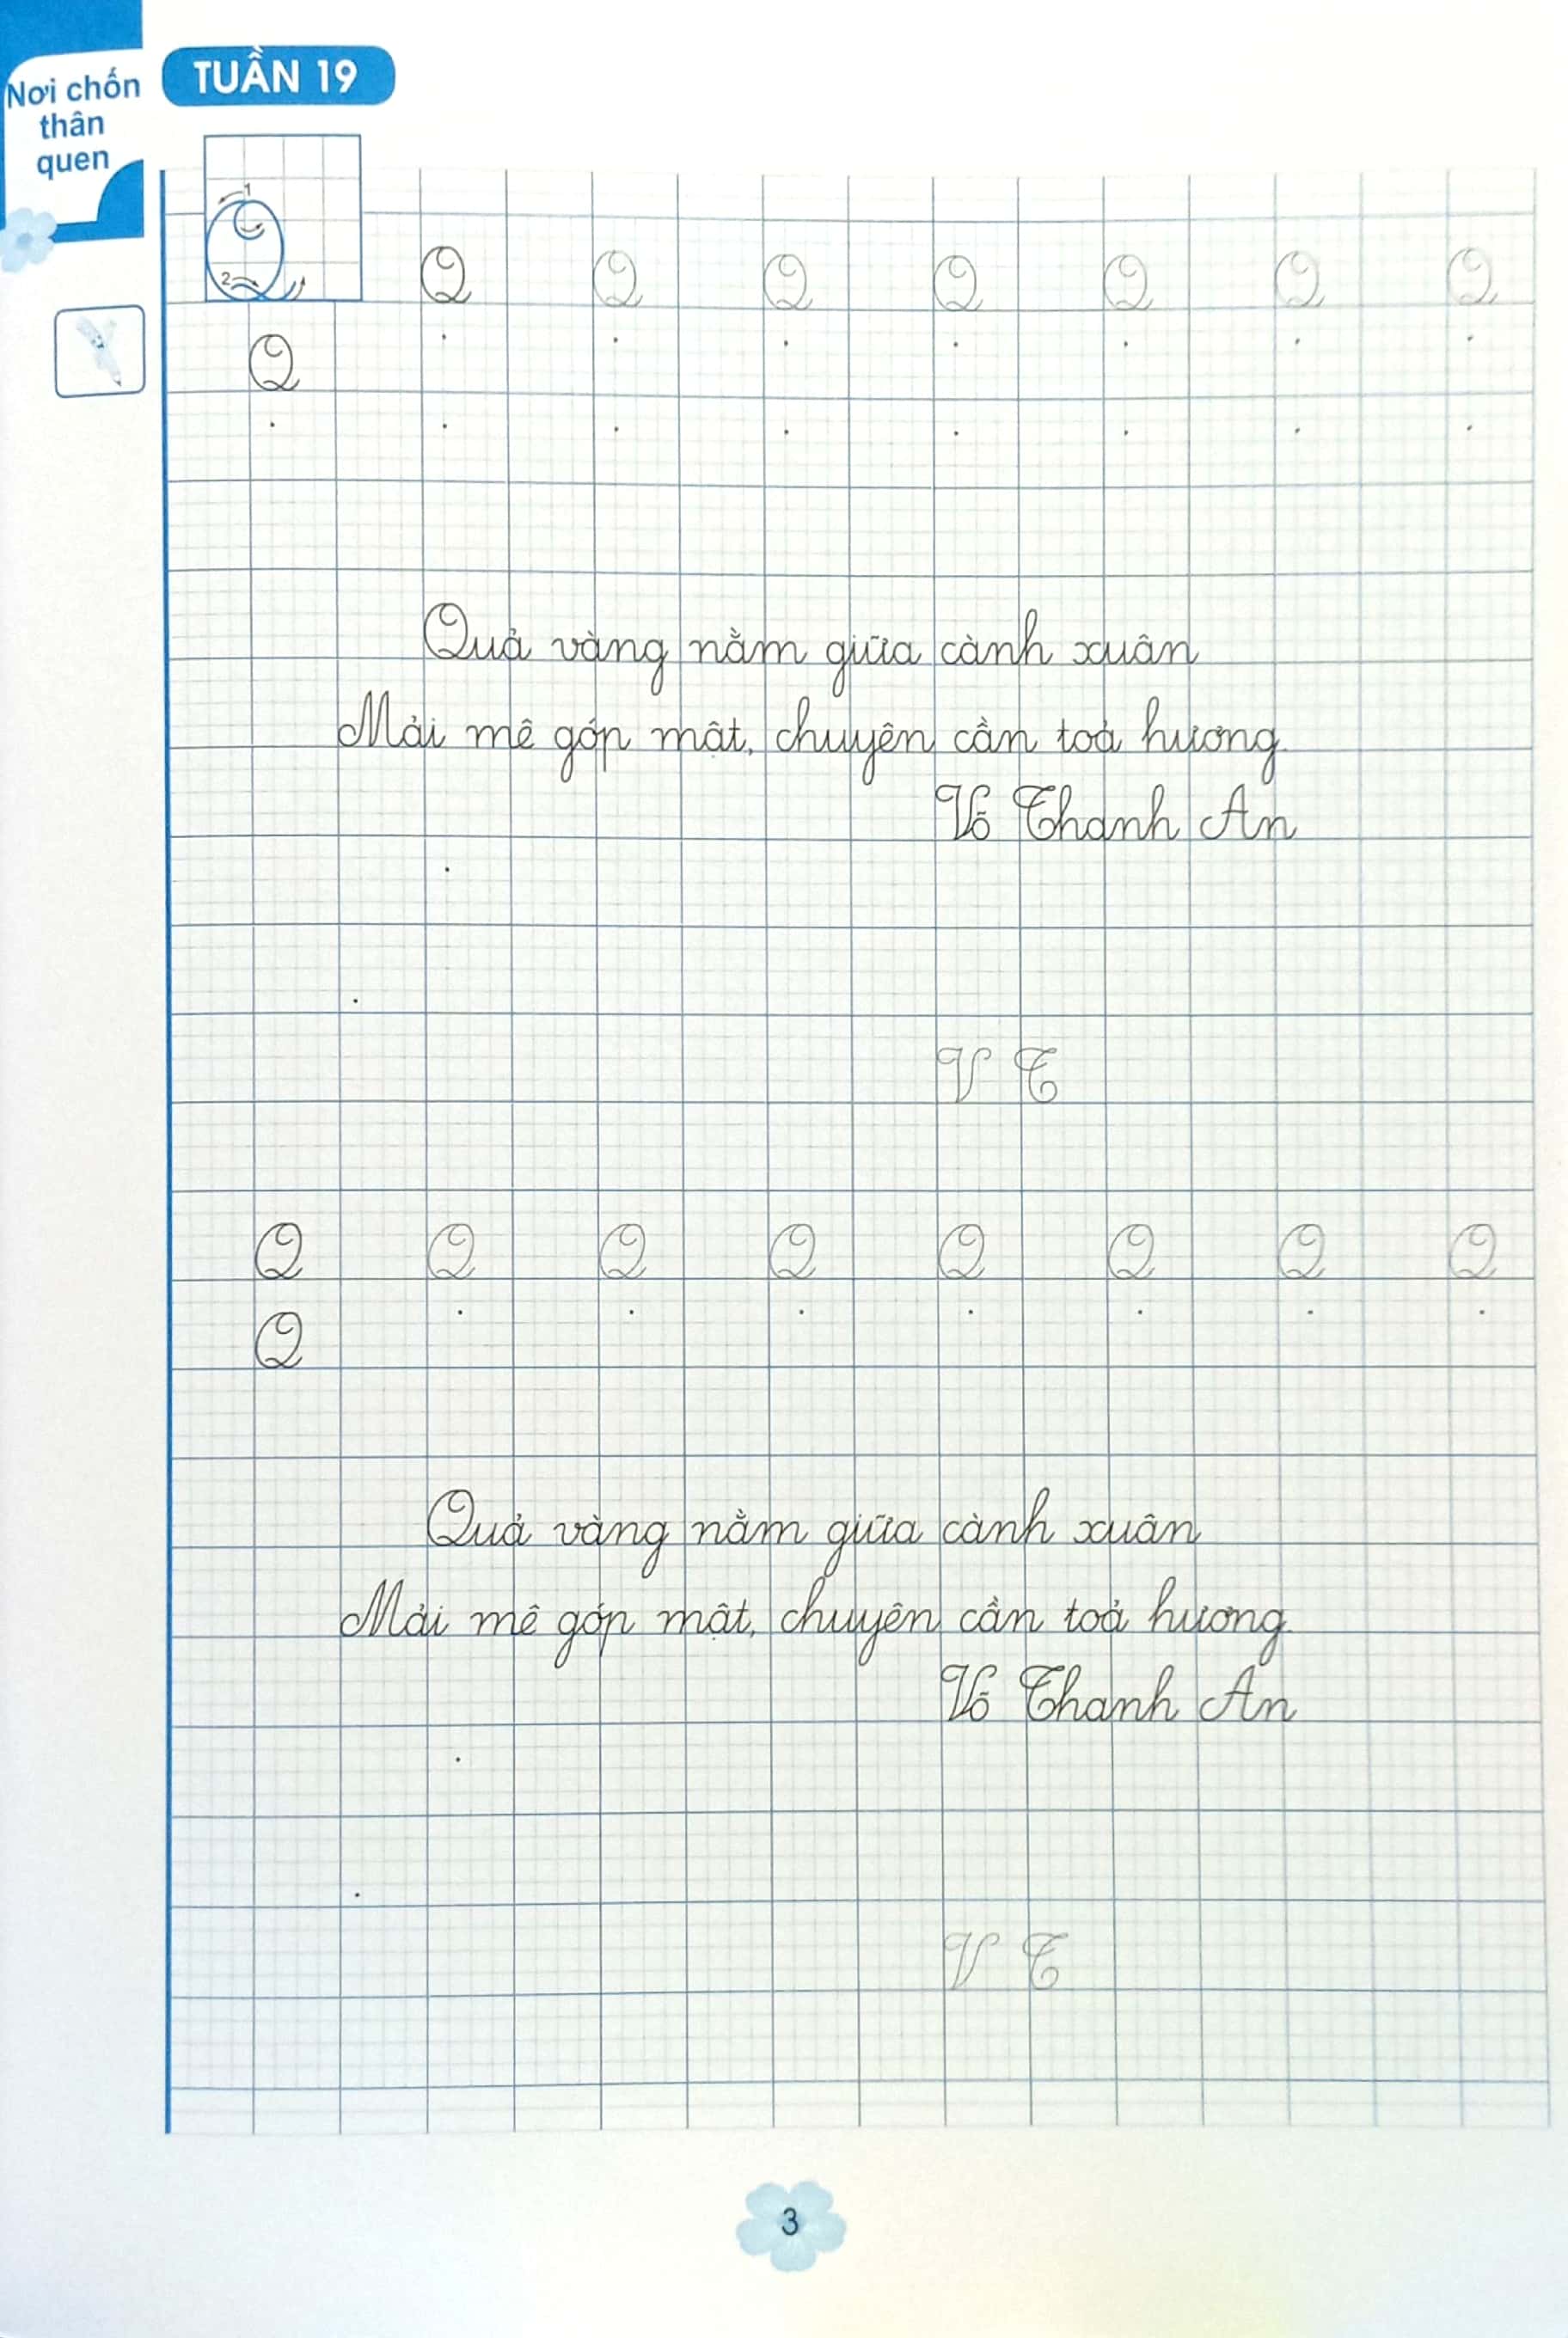 Nơi chốn
thân
quen
TUẦN 19
1
2
Q Q Q Q Q Q Q
Q
Quả vàng nằm giữa cành xuân
Mải mê góp mật, chuyên cần toả hương.
Võ Thanh An
V T
Q Q Q Q Q Q Q Q
Q
Quả vàng nằm giữa cành xuân
Mải mê góp mật, chuyên cần toả hương.
Võ Thanh An
V T
3